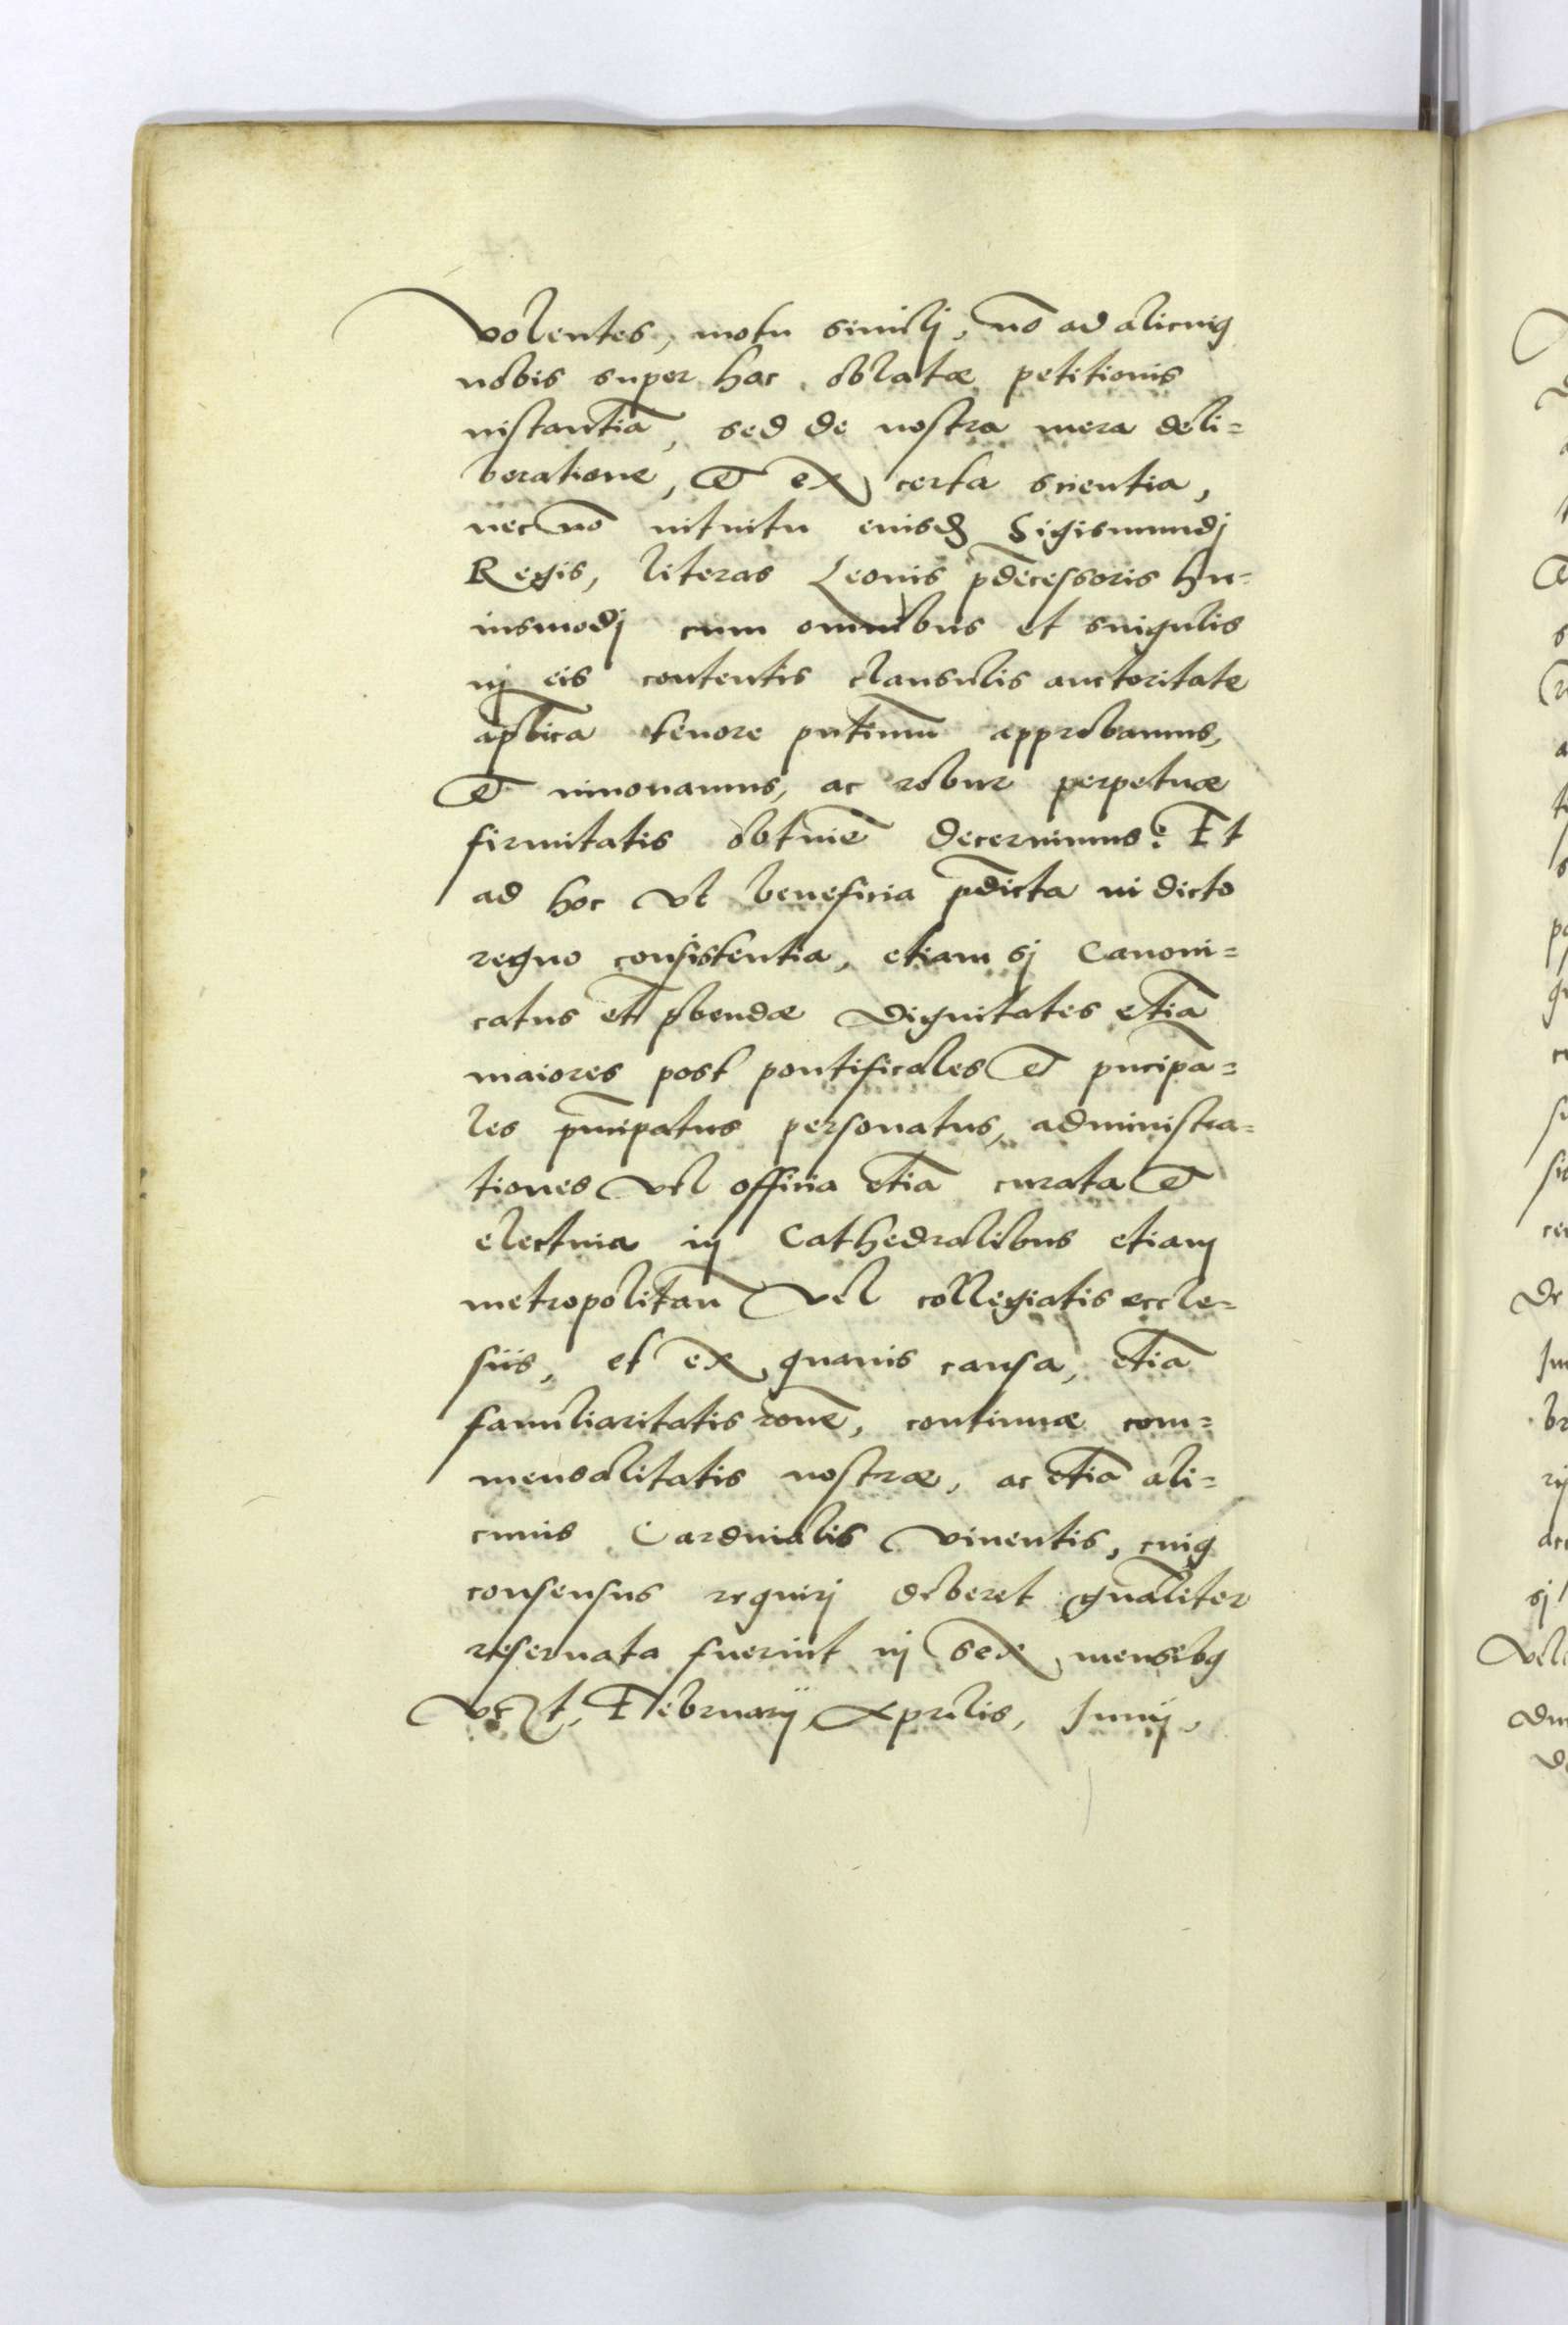 volentes, motu similj, nō ad alicuiꝯ
nobis super hac oblatæ petitionis
instantiā, sed de nostra mera deli=
beratione, et ex certa scientia,
necnō intuitu eiusdꝫ Sigismundj
Regis, literas Leonis p̄decessoris hu=
iusmodj cum omnibus et singulis
in eis contentis clausulis auctoritate
aplica tenore pn̄tium approbamus,
et innouamus, ac robur perpetuæ
firmitatis obtinē decernimus: Et
ad hoc vt beneficia p̄dicta in dicto
regno consistentia, etiam sj Canoni=
catus et p̄bendæ dignitates etiā
maiores post pontificales et pn̄cipa=
les pn̄cipatus personatus, administra=
tiones vel officia etiā curata et
electiua in Cathedralibus etiam
metropolitan̄ vel collegiatis eccle=
siis, et ex quauis causa, etiā
familiaritatis rōne, continuæ com=
mensalitatis nostræ, ac etiā ali=
cuius Cardinalis viuentis, cuiꝯ
consensus requirj deberet qualiter
reseruata fuerint in sex mensibꝯ
vꝫt, Februarij Aprilis, Junij,